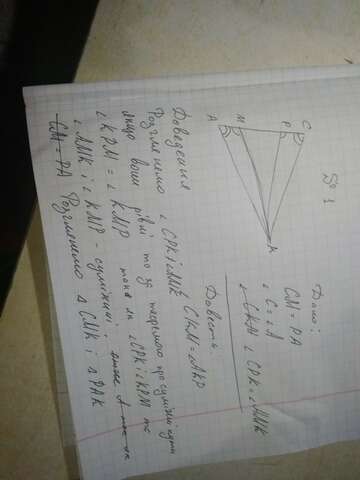 № 1
Дано:
CM = PA
∠C = ∠A
∠CPK = ∠AMK
Довести:
∠CKM = ∠AKP
C
P
M
A
K
Доведення
Розглянемо ∠CPK і ∠AMK
якщо вони рівні то за теоремою про суміжні кути
∠KPM = ∠KMP тому як ∠CPK і ∠KPM та
∠AMK і ∠KMP - суміжні
CM = PA Розглянемо Δ CMK і Δ PAK